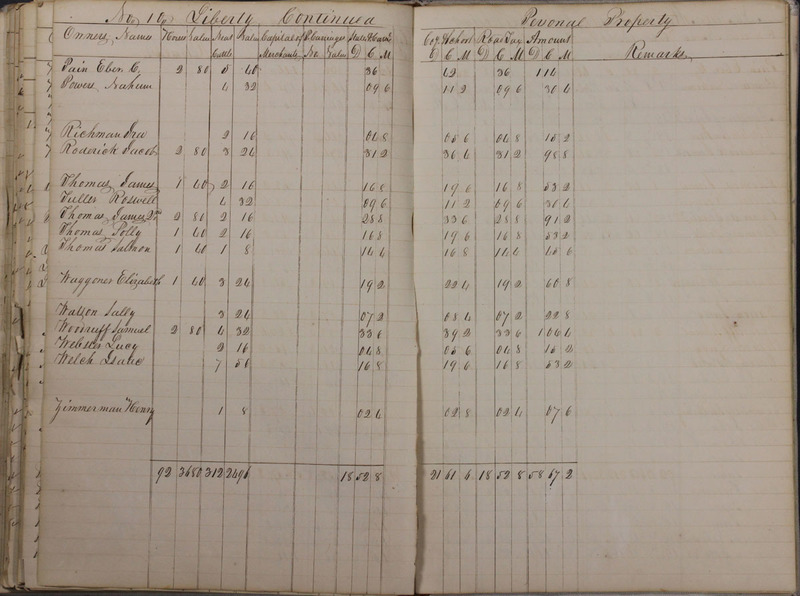 No 10 Liberty Continued Personal Property
Owners Names Horses Value Neat Cattle Value Capital of Merchants P. Carriages No. Value State & Canal D C M Co & School D C M Road Tax D C M Amount D C M Remarks
Pain Eben C, 2 80 5 40 36 42 36 114
Powers Nahum 4 32 09 6 11 2 09 6 30 4
Richman Ira 2 16 04 8 05 6 04 8 15 2
Roderick Jacob 2 80 3 24 31 2 36 4 31 2 98 8
Thomas James 1 40 2 16 16 8 19 6 16 8 53 2
Tuller Roswell 4 32 09 6 11 2 09 6 30 4
Thomas James 2nd 2 80 2 16 28 8 33 6 28 8 91 2
Thomas Polly 1 40 2 16 16 8 19 6 16 8 53 2
Thomas Salmon 1 40 1 8 14 4 16 8 14 4 45 6
Waggoner Elizabeth 1 40 3 24 19 2 22 4 19 2 60 8
Watson Sally 3 24 07 2 08 4 07 2 22 8
Woodruff Samuel 2 80 4 32 33 6 39 2 33 6 1 06 4
Webster Lucy 2 16 04 8 05 6 04 8 15 2
Welch Isaac 7 56 16 8 19 6 16 8 53 2
Zimmerman Henry 1 8 02 4 02 8 02 4 07 6
92 3680 312 2496 18 52 8 21 61 6 18 52 8 58 67 2